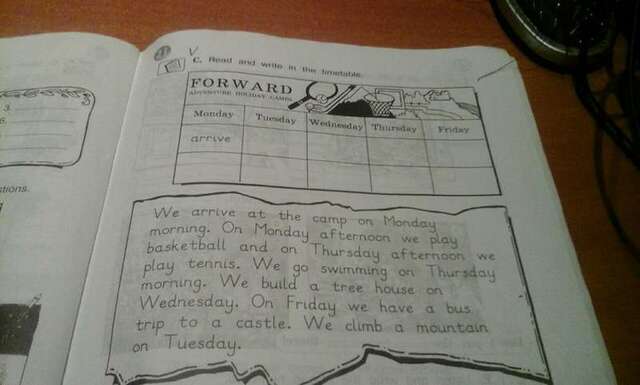 C. Read and write in the timetable.
FORWARD
ADVENTURE HOLIDAY CAMPS
Monday Tuesday Wednesday Thursday Friday
arrive
3.
We arrive at the camp on Monday
morning. On Monday afternoon we play
basketball and on Thursday afternoon we
play tennis. We go swimming on Thursday
morning. We build a tree house on
Wednesday. On Friday we have a bus
trip to a castle. We climb a mountain
on Tuesday.